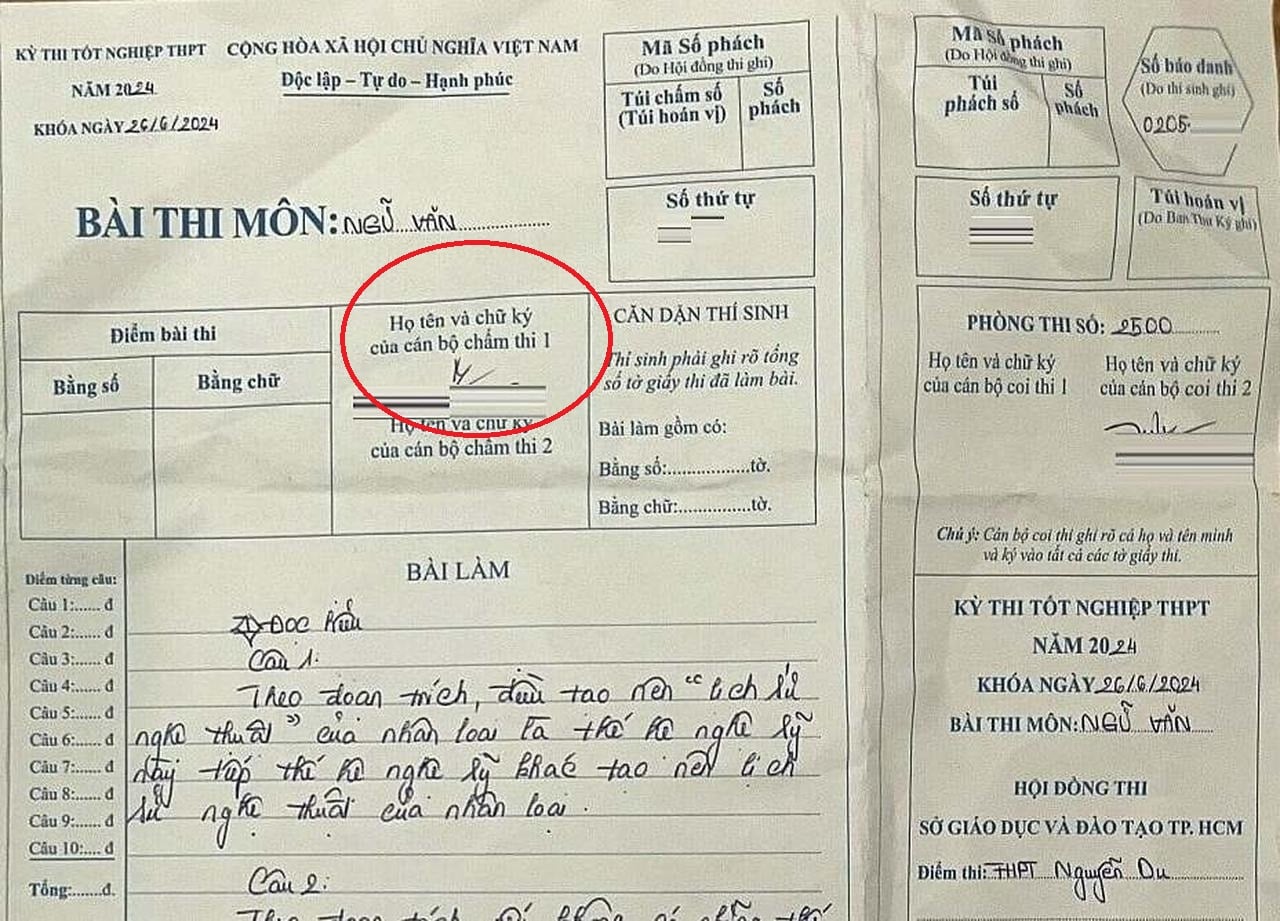 KỲ THI TỐT NGHIỆP THPT
NĂM 2024
KHÓA NGÀY 26/6/2024
CỘNG HÒA XÃ HỘI CHỦ NGHĨA VIỆT NAM
Độc lập – Tự do – Hạnh phúc
BÀI THI MÔN: NGỮ VĂN
Mã Số phách
(Do Hội đồng thi ghi)
Túi chấm số
(Túi hoán vị)
Số
phách
Số thứ tự
Điểm bài thi
Bằng số
Bằng chữ
Họ tên và chữ ký
của cán bộ chấm thi 1
Họ tên và chữ ký
của cán bộ chấm thi 2
CĂN DẶN THÍ SINH
Thí sinh phải ghi rõ tổng
số tờ giấy thi đã làm bài.
Bài làm gồm có:
Bằng số:...............tờ.
Bằng chữ:.............tờ.
Điểm từng câu:
Câu 1:...... đ
Câu 2:...... đ
Câu 3:...... đ
Câu 4:...... đ
Câu 5:...... đ
Câu 6:...... đ
Câu 7:...... đ
Câu 8:...... đ
Câu 9:...... đ
Câu 10:.... đ
Tổng:.......đ.
BÀI LÀM
Đọc hiểu
Câu 1:
Theo đoạn trích, điều tạo nên "lịch sử
nghệ thuật" của nhân loại là thế hệ nghệ sỹ
này tiếp thế hệ nghệ sỹ khác tạo nên lịch
sử nghệ thuật của nhân loại.
Câu 2:
Theo đoạn trích
Mã Số phách
(Do Hội đồng thi ghi)
Túi
phách số
Số
phách
Số báo danh
(Do thí sinh ghi)
0205
Số thứ tự
Túi hoán vị
(Do Ban Thư Ký ghi)
PHÒNG THI SỐ: 2500
Họ tên và chữ ký
của cán bộ coi thi 1
Họ tên và chữ ký
của cán bộ coi thi 2
Chú ý: Cán bộ coi thi ghi rõ cả họ và tên mình
và ký vào tất cả các tờ giấy thi.
KỲ THI TỐT NGHIỆP THPT
NĂM 2024
KHÓA NGÀY 26/6/2024
BÀI THI MÔN: NGỮ VĂN
HỘI ĐỒNG THI
SỞ GIÁO DỤC VÀ ĐÀO TẠO TP. HCM
Điểm thi: THPT Nguyễn Du